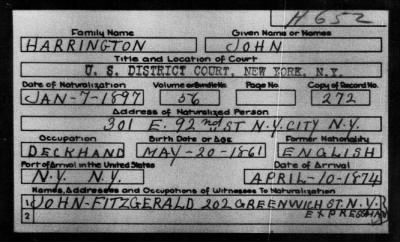 H 652
Family Name Given Name or Names
HARRINGTON JOHN
Title and Location of Court
U. S. DISTRICT COURT, NEW YORK, N.Y.
Date of Naturalization Volume or Bundle No. Page No. Copy of Record No.
JAN-7-1897 56 272
Address of Naturalized Person
301 E. 92nd ST N.Y. CITY N.Y.
Occupation Birth Date or Age Former Nationality
DECKHAND MAY-20-1861 ENGLISH
Port of Arrival in the United States Date of Arrival
N.Y. N.Y. APRIL-10-1874
Names, Addresses and Occupations of Witnesses To Naturalization
1 JOHN-FITZGERALD 202 GREENWICH ST. N.Y.
2 EXPRESSMAN